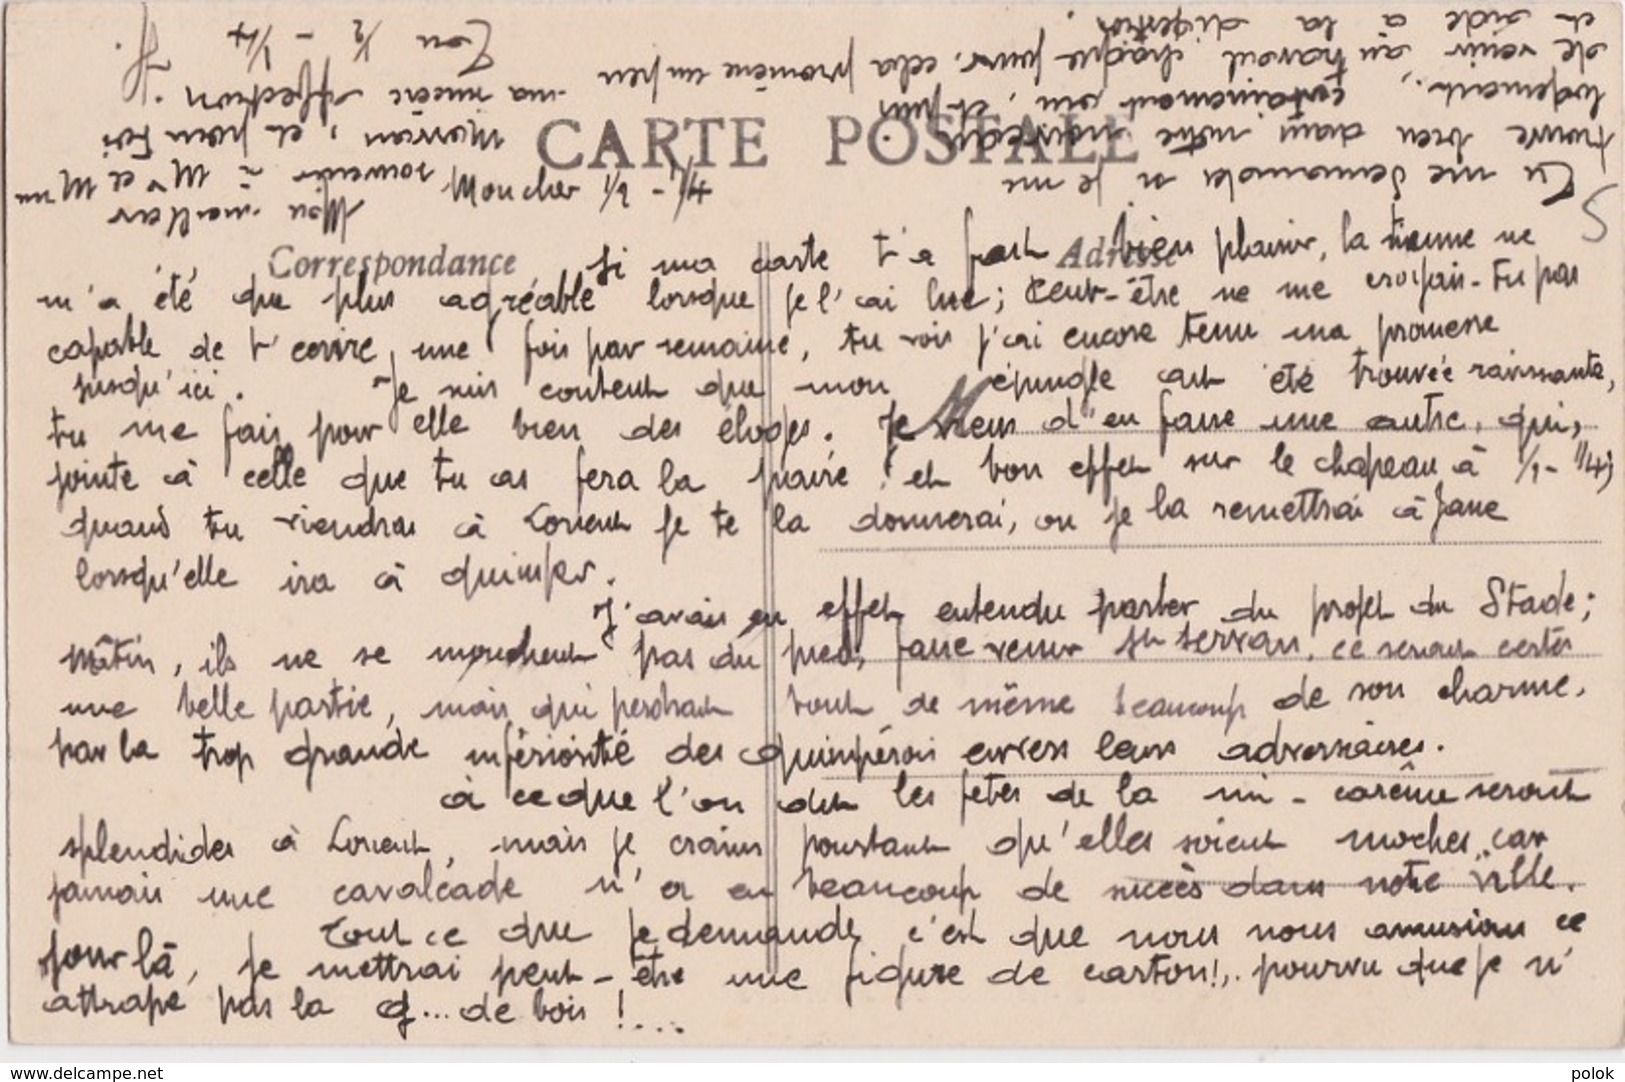 CARTE POSTALE
Correspondance
Adresse
Mon cher 1/2 - 1/4
Si ma carte t'a fait bien plaisir, la tienne ne
m'a été que plus agréable lorsque je l'ai lue; Peut-être ne me croyais-tu pas
capable de t'écrire une fois par semaine, tu vois j'ai encore tenu ma promesse
jusqu'ici. Je suis content que mon épingle ait été trouvée ravissante,
tu me fais pour elle bien des éloges. Je viens d'en faire une autre, qui,
jointe à celle que tu as fera la paire! et bon effet sur le chapeau à 1/2 - 1/4;
quand tu viendras à Lorient je te la donnerai, ou je la remettrai à Jane
lorsqu'elle ira à Quimper.
J'avais en effet entendu parler du projet du Stade;
mâtin, ils ne se mouchent pas du pied, faire venir St Servan, ce serait certes
une belle partie, mais qui perdrait tout de même beaucoup de son charme,
par la trop grande infériorité des Quimpérois envers leurs adversaires.
à ce que l'on dit les fêtes de la mi-carême seront
splendides à Lorient, mais je crains pourtant qu'elles soient moches, car
jamais une cavalcade n'a eu beaucoup de succès dans notre ville.
Tout ce que je demande, c'est que nous nous amusions ce
jour là, je mettrai peut-être une figure de carton!, pourvu que je n'
attrape pas la g... de bois!....
Tu me demandes si je me
trouve bien dans notre nouveau
logement, certainement oui, et puis
de venir au travail chaque jour, cela promène un peu
et aide à la digestion.
Mon meilleur
souvenir à Mr et Mme
Morvan, et pour toi
ma sincère affection.
Ton 1/2 - 1/4
www.delcampe.net
polok